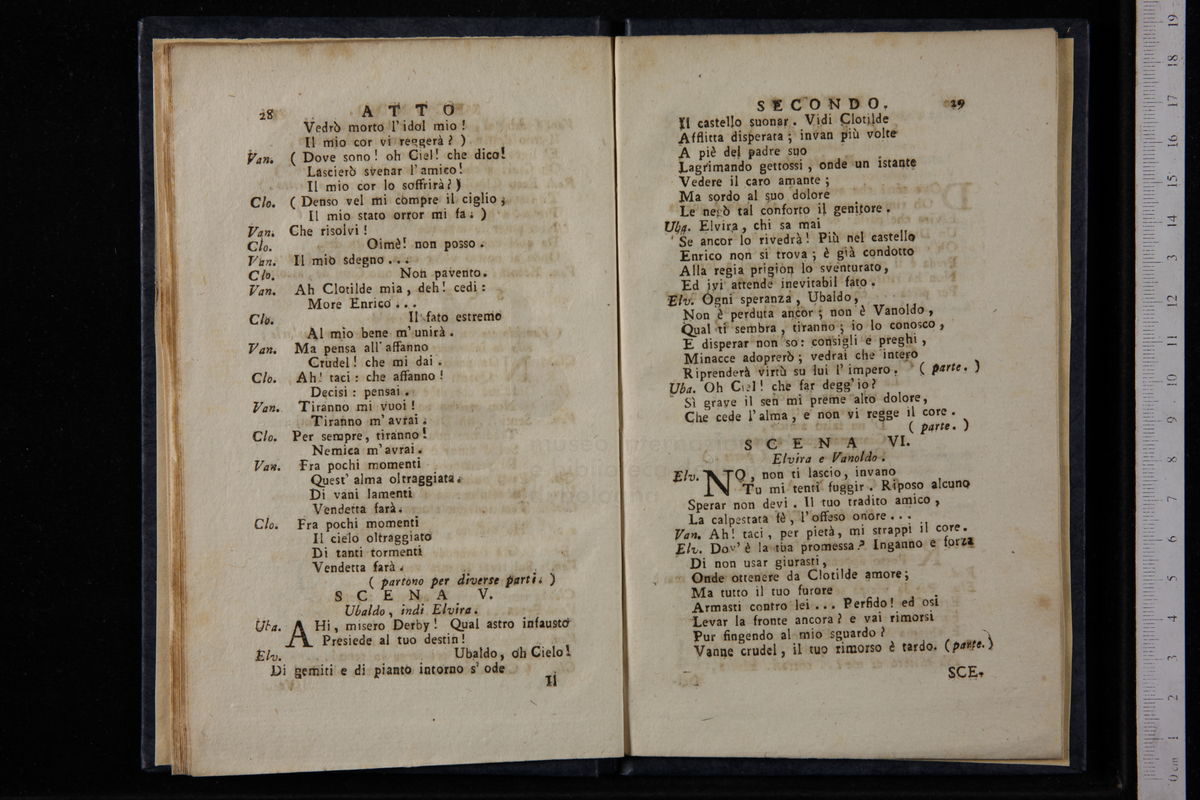 28 ATTO
Vedrò morto l'idol mio!
Il mio cor vi reggerà? )
Van. ( Dove sono! oh Ciel! che dico!
Lascierò svenar l'amico!
Il mio cor lo soffrirà? )
Clo. ( Denso vel mi compre il ciglio;
Il mio stato orror mi fa. )
Van. Che risolvi!
Clo. Oimè! non posso.
Van. Il mio sdegno...
Clo. Non pavento.
Van. Ah Clotilde mia, deh! cedi:
More Enrico...
Clo. Il fato estremo
Al mio bene m'unirà.
Van. Ma pensa all'affanno
Crudel! che mi dai.
Clo. Ah! taci: che affanno!
Decisi: pensai.
Van. Tiranno mi vuoi!
Tiranno m'avrai.
Clo. Per sempre, tiranno!
Nemica m'avrai.
Van. Fra pochi momenti
Quest'alma oltraggiata.
Di vani lamenti
Vendetta farà.
Clo. Fra pochi momenti
Il cielo oltraggiato
Di tanti tormenti
Vendetta farà.
( partono per diverse parti. )
SCENA V.
Ubaldo, indi Elvira.
Uba. AHi, misero Derby! Qual astro infausto
Presiede al tuo destin!
Elv. Ubaldo, oh Cielo!
Di gemiti e di pianto intorno s'ode
Il
SECONDO. 29
Il castello suonar. Vidi Clotilde
Afflitta disperata; invan più volte
A piè del padre suo
Lagrimando gettossi, onde un istante
Vedere il caro amante;
Ma sordo al suo dolore
Le negò tal conforto il genitore.
Uba. Elvira, chi sa mai
Se ancor lo rivedrà! Più nel castello
Enrico non si trova; è già condotto
Alla regia prigion lo sventurato,
Ed ivi attende inevitabil fato.
Elv. Ogni speranza, Ubaldo,
Non è perduta ancor; non è Vanoldo,
Qual ti sembra, tiranno; io lo conosco,
E disperar non so: consigli e preghi,
Minacce adoprerò; vedrai che intero
Riprenderà virtù su lui l'impero. ( parte. )
Uba. Oh Ciel! che far degg'io?
Sì grave il sen mi preme alto dolore,
Che cede l'alma, e non vi regge il core.
( parte. )
SCENA VI.
Elvira e Vanoldo.
Elv. NO, non ti lascio, invano
Tu mi tenti fuggir. Riposo alcuno
Sperar non devi. Il tuo tradito amico,
La calpestata fè, l'offeso onore...
Van. Ah! taci, per pietà, mi strappi il core.
Elv. Dov'è la tua promessa? Inganno e forza
Di non usar giurasti,
Onde ottenere da Clotilde amore;
Ma tutto il tuo furore
Armasti contro lei... Perfido! ed osi
Levar la fronte ancora? e vai rimorsi
Pur fingendo al mio sguardo?
Vanne crudel, il tuo rimorso è tardo. (parte.)
SCE-